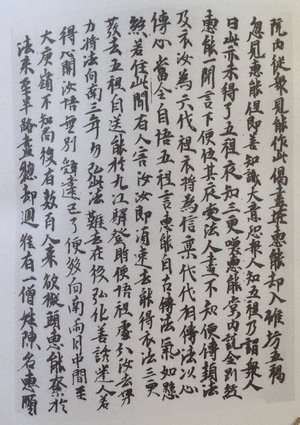 院內從眾見能作此偈盡恠惠能却入碓坊五褐
忽見惠能但即善知識大意恐眾人知五祖乃謂眾人
曰此亦未得了五祖夜知三更喚惠能堂內說金剛經
惠能一聞言下便伍其夜受法人盡不知便傳頓法
及衣汝為六代祖衣將為信稟代代相傳法以心
傳心當令自悟五祖言惠能自古傳法氣如懸
絲若住此間有人害汝汝即須速去能得衣法三更
發去五祖自送能於九江驛登時便悟祖處分汝去努
力將法向南三年勿弘此法難去在後弘化善誘迷人若
得心開汝悟無別辭違已了便發向南兩月中間至
大庾嶺不知向後有數百人來欲擬頭惠能奪於
法來至半路盡總却迴唯有一僧姓陳名惠順